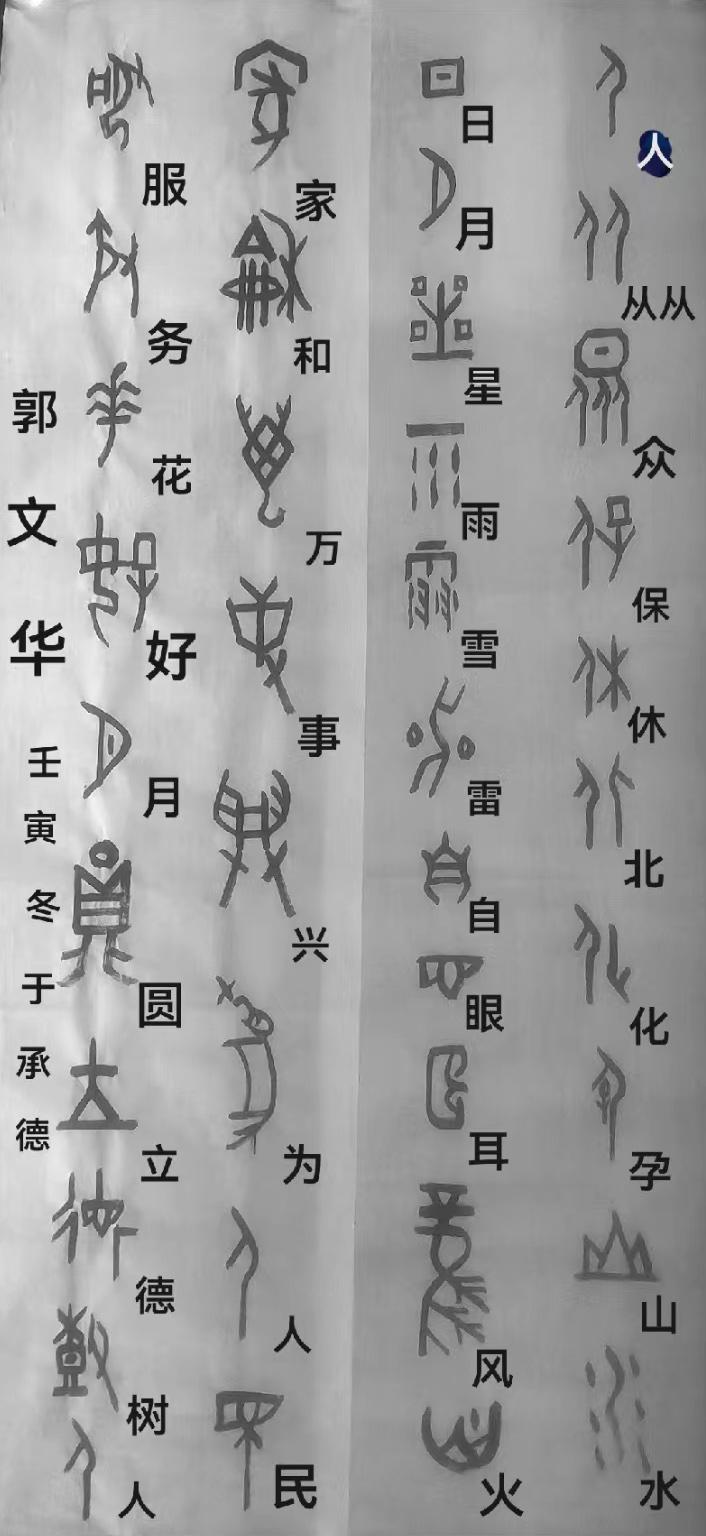 人从从众保休北化孕山水
日月星雨雪雷自眼耳风火
家和万事兴为人民
服务花好月圆立德树人
郭文华
壬寅冬于承德